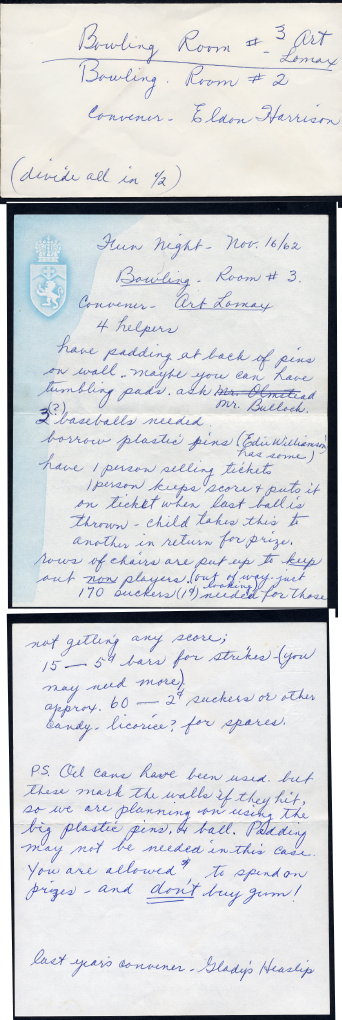 Bowling Room # 3 Art
Lomax
Bowling. Room # 2
Convener - Eldon Harrison
(divide all in 1/2)
Fun Night - Nov. 16/62
Bowling - Room # 3.
Convener - Art Lomax
4 helpers
have padding at back of pins
on wall - maybe you can have
tumbling pads. ask Mr. Olmstead
Mr. Bulloch.
3 (?) baseballs needed.
borrow plastic pins (Edie Williamson
has some)
have 1 person selling tickets
1 person keeps score & puts it
on ticket when last ball is
thrown - child takes this to
another in return for prize.
rows of chairs are put up to keep
out non players. (out of way. just
looking)
170 suckers (1¢) needed for those
not getting any score;
15 - 5¢ bars for strikes - (you
may need more)
approx. 60 - 2¢ suckers or other
candy - licorice? for spares.
P.S. Oil cans have been used. but
these mark the walls if they hit,
so we are planning on using the
big plastic pins, & ball. Padding
may not be needed in this case.
You are allowed $ to spend on
prizes - and don't buy gum!
last year's convener - Gladys Heaslip